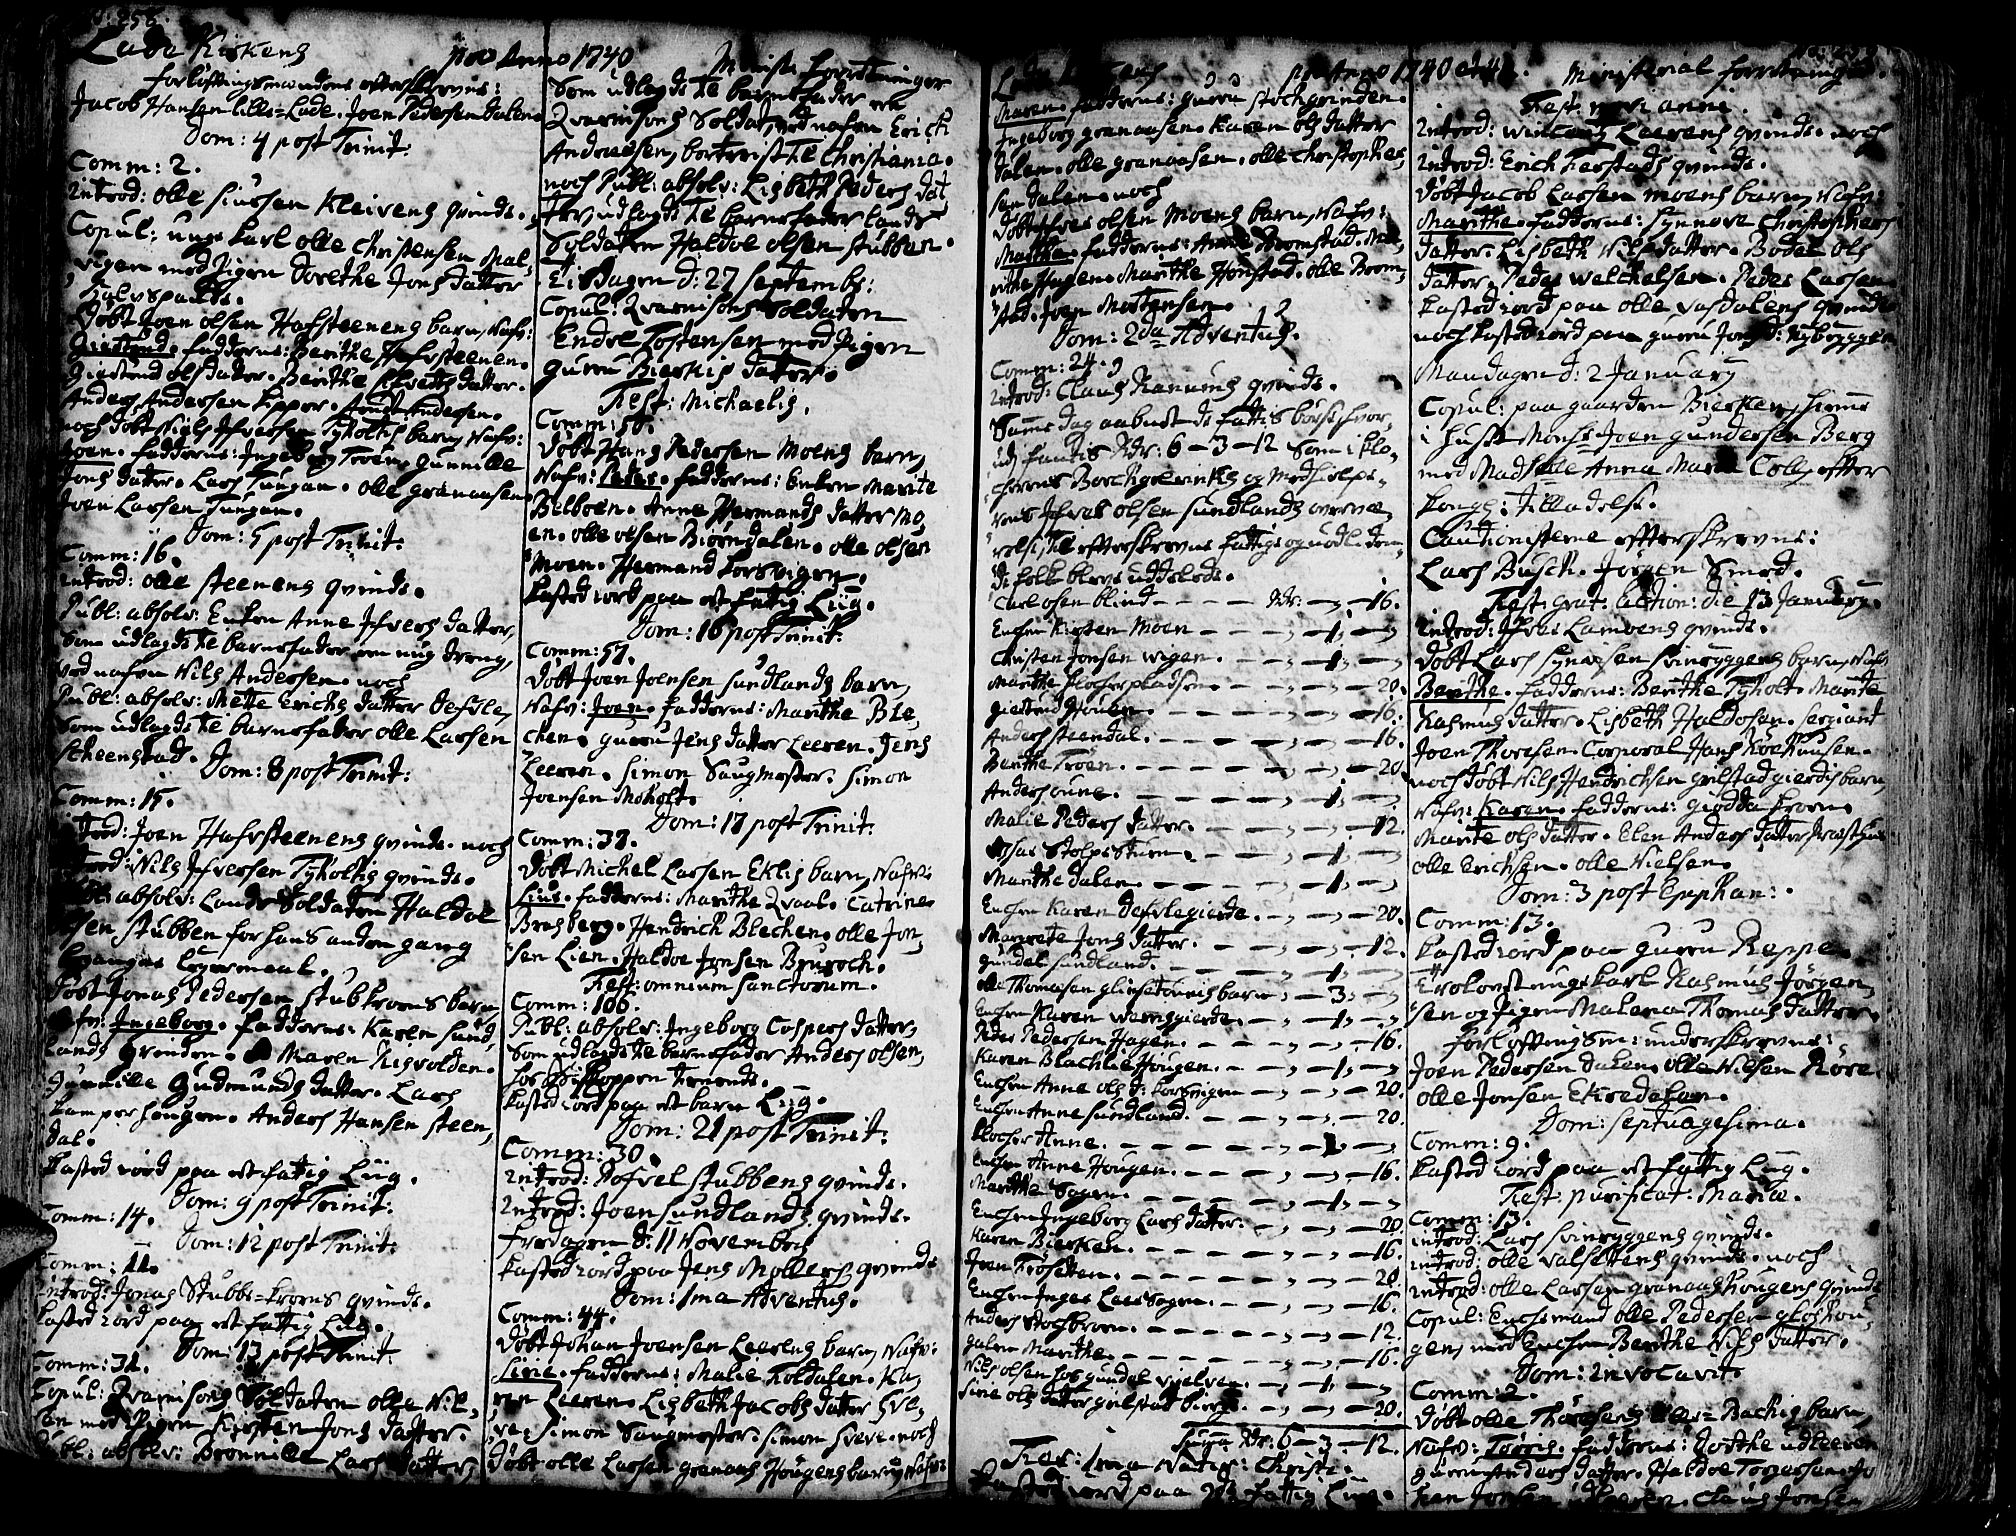 Lade Kirkens pro Anno 1740 Ministe: forretninger
forløftingsmændens efterskrevne:
Jacob Hansen lille=Lade. Joen Pedersen dalen.
Dom: 4 post Trinit:
Comm: 2.
Introd: olle siursen Kleivens qvinde.
Copul: unge karl olle Christensen Mal-
vigen med Pigen Dorethe Jons datter
Døbt Joen olsen Hafsteenens barn, Nafv:
Giertrud. fadderne: Berithe Hafsteenen.
Giertrud ols datter. Berithe datter.
Anders Andersen
noch døbt Niels Ifversen Tyholts barn, Nafv:
Joen. fadderne: Ingeborg Troen, Gunnille
Jons datter. Lars Tungen. olle granaasen
Joen Larsen Tungen.
Dom: 5 post Trinit:
Comm: 16.
Introd: olle steenens qvinde.
Publ: absolv: Enken Anne Ifvers datter,
som udlagde te barnefader en ung dreng,
ved nafn Nils Andersen. noch
Publ: absolv: Mette Erichs datter
som udlagde te barnefader olle Larsen
Scheenstad.
Dom: 8 post Trinit:
Comm: 15.
Introd: Joen Hafvsteenens qvinde. noch
Introd: Nils Ifversen Tyholts qvinde.
Publ: absolv: Lands Soldaten Haldoe
olsen stubben for hans anden gang
begangne Leyermaal.
Døbt Jonas Pedersen stubkroens barn,
Nafv: Ingeborg. fadderne: Karen Sund,
lands qvinden. Maren
Gunnille Gudmunds datter. Lars
Kamperhougen. Anders Hansen steen,
dal.
kasted iord paa et fattig Liig.
Dom: 9 post Trinit:
Comm: 14.
Dom: 12 post Trinit:
Comm: 11.
Introd: Jonas Stubbe=kroens qvinde.
kasted iord paa et fattig Liig.
Dom: 13 post Trinit:
Comm: 31.
Copul: Qvarnisons Soldaten olle Nil,
sen med Pigen Kirsten Jons datter.
Publ: absolv: Pronnille Lars datter,
Som udlagde te barnefader en
Qvarnisons Soldat, ved nafn Erich
Andreesen, bortreist te Christiania.
noch Publ: absolv: Lisbeth Peders dat,
ter udlagde te barnefader lands
Soldaten Haldoe olsen stubben.
Tisdagen d: 27 Septembr:
Copul: Qvarnisons Soldaten
Endre Tostensen med Pigen
Guru Bierkis datter.
Fest: Michaelis.
Comm: 58.
Døbt Hans Pedersen Moens barn,
Nafv: Peder. fadderne: Enken Marite
Belboen. Anne Hermands datter Mo,
en. olle olsen Biørndalen. olle olsen
Moen. Hermand Korsvigen.
kasted iord paa et fattig Liig.
Dom: 16 post Trinit:
Comm: 57.
Døbt Joen Joensen sundlands barn,
Nafv: Joen. fadderne: Marithe Ble,
chen. Guru Jens datter Leeren. Jens
Leeren. Simon Saugmester. Simon
Joensen Moholt.
Dom: 17 post Trinit:
Comm: 37.
Døbt Michel Larsen Eklis barn, Nafv:
fadderne: Marithe Qvaal. Catrine
Bresberg. Hendrich Blechen. olle Jon,
sen Lien. Haldoe Jonsen
Fest: omnium Sanctorum.
Comm: 106.
Publ: absolv: Ingeborg Caspers datter,
som udlagde te barnefader Anders olsen,
hos Bischoppen tienende.
kasted iord paa et barn Liig.
Dom: 21 post Trinit:
Comm: 30.
Introd: stubbens qvinde.
Introd: Joen sundlands qvinde.
fredagen d: 11 Novembr:
kasted iord paa Jens Møllers qvinde
Dom: 1ma Adventus.
Comm: 44.
Døbt Johan Joensen Leerens barn, Nafv:
Sirie. fadderne: Malie Toldalen. Ka,
ren Leeren. Lisbeth Jacobs datter Sve,
ve. Simon Saugmester. Simon Sveve. noch
Døbt olle Larsen granaas Hougens barn, Nafv:
Lade Kirkens pro Anno 1740 et 41. Ministerial forretninger.
Maren. fadderne: Guru stochqvinden.
Ingeborg granaasen. Karen ols datter
dalen. olle granaasen. olle Christopher,
sen dalen. noch
Døbt Ifver olsen Moens barn, Nafv:
Marthe. fadderne: Anne Bromstad. Ma,
rithe Hagen. Marithe Honstad. olle Brom,
stad. Joen Mortensen.
Dom: 2da Adventus.
Comm: 24.
Introd: Claus Ranums qvinde.
Samme dag aabnet de fattigs børse, hvor,
udj fantes Rdr: 6 - 3 - 12 Som i klo,
cherens Borchgrevinks og medhielpe,
rens Ifver olsen sundlands overvæ,
relse, til efterskrevne fattige og nødliden,
de folk blev uddeelede.
Carl osen blind - - - Rdr: - , - 16.
Enchen Kirsten Moen - - - , - 1, -
Christen Jonsen vegen. - - , - 1, -
Marithe - - - , - , - 20.
Giertrud - - - , - , - 16.
Anders steendal. - - - , - , - 16.
Berithe Troen. - - - , - , - 20
Anders oune. - - - , - 1, -
Malie Peders datter. - - , - , - 12.
Stolpestuen. - - , - 1, -
Marithe dalen. - - - , - 1, -
Enchen Karen Defvlegierde. - , - , - 20.
Margrete Jons datter. - - , - , - 12.
Gundel sundland. - - - , - 1, -
olle Thomasen barn - , - 3, -
Enchen Karen - , - 1, -
Peder Pedersen Hagen. - - , - , - 16.
Karen Blachlie Hougen. - - , - 1, -
Enchen Anne ols d: Korsvigen - , - , - 20.
Enchen Anne sundland. - - , - , - 20.
Klocher Anne. - - - , - 1, -
Enchen Anne Hougen. - - , - , - 16.
Marithe Sagen. - - - , - 1, -
Enchen Ingeborg Lars datter. - , - , - 20
Karen Bierken. - - - , - , - 16.
Joen Frosetten. - - - , - , - 20.
Enchen Inger Leer Sagen. - , - , - 16.
Anders stochbroen. - - - , - , - 12.
Galen Marithe. - - - , - , - 16.
Nils olsen hos gundel - , - 1, -
Sirie ols datter gielstad bierge. - , - , - 20.
Summa Rdr: 6 - 3 - 12.
Fer: 1ma Nativ: Christi.
kasted iord paa et fattig Liig.
Fest: novi anni.
Introd: Leerens qvinde. noch
Introd: Erich Ferstads qvinde.
Døbt Jacob Larsen Moens barn, Nafv:
Marithe. fadderne: Synnove Christophers
datter. Lisbeth Nils datter. Bodel ols
datter. Peder Welchelsen. Peder Larsen.
kasted iord paa olle qvinde
noch kasted iord paa guru Jons d: Nybrygger
Mandagen d: 2 January
Copul: paa gaarden Bierken, hiemme
i huset Monsr Joen Gundersen Berg
med Madselle Anna Maria Colly efter
kongl: tilladelse.
Cautionisterne efterskrevne:
Lars Busch. Jørgen Smed.
Fest: grat: action: die 13 January.
Introd: Ifver Lamoens qvinde.
Døbt Lars Synisen Svinryggens barn, Nafv:
Berithe. fadderne: Berithe Tyholt. Marite
Rasmus datter. Lisbeth Haldosen. sergiant
Joen Thoresen. Corporal Hans
noch døbt Nils Hendrichsen gielstad gierdis barn,
Nafv: Karen. fadderne: giødda kroen.
Marite ols datter. Elen Anders datter
olle Erichsen. olle Nielsen.
Dom: 3 post Epphan:
Comm: 13.
kasted iord paa Guru Reppe.
Trolovet unge karl Rasmus Jørgen,
sen og Pigen Malena Thomas datter.
forløftingsm: underskrevne:
Joen Pedersen dalen. olle Nilsen
olle Jonsen Ekredalen.
Dom: septuagesima.
Comm: 9.
kasted iord paa et fattig Liig.
Fest: purificat: Mariæ.
Comm: 13.
Introd: Lars svinryggens qvinde.
Introd: olle valsettens qvinde. noch
Introd: olle Larsen granaas Hougens qvinde
Copul: Enchemand olle Pedersen
gen, med Enchen Berithe Nils datter.
Dom: Invocavit.
Comm: 2.
Døbt olle Thoresens lille=Bachis barn,
Nafv: fadderne: Dorthe udleeren
Guru Anders datter. Haldoe Torgersen. Jo
han Jonsen udleeren. Claus Jonsen